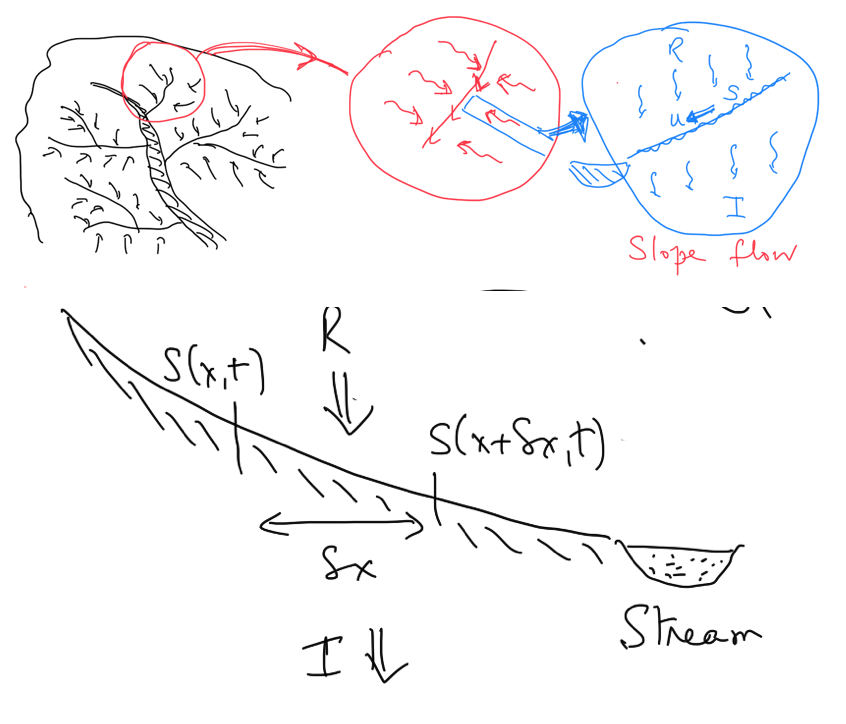 R
S
u
I
Slope flow
R
S(x,t)
S(x+δx,t)
δx
Stream
I